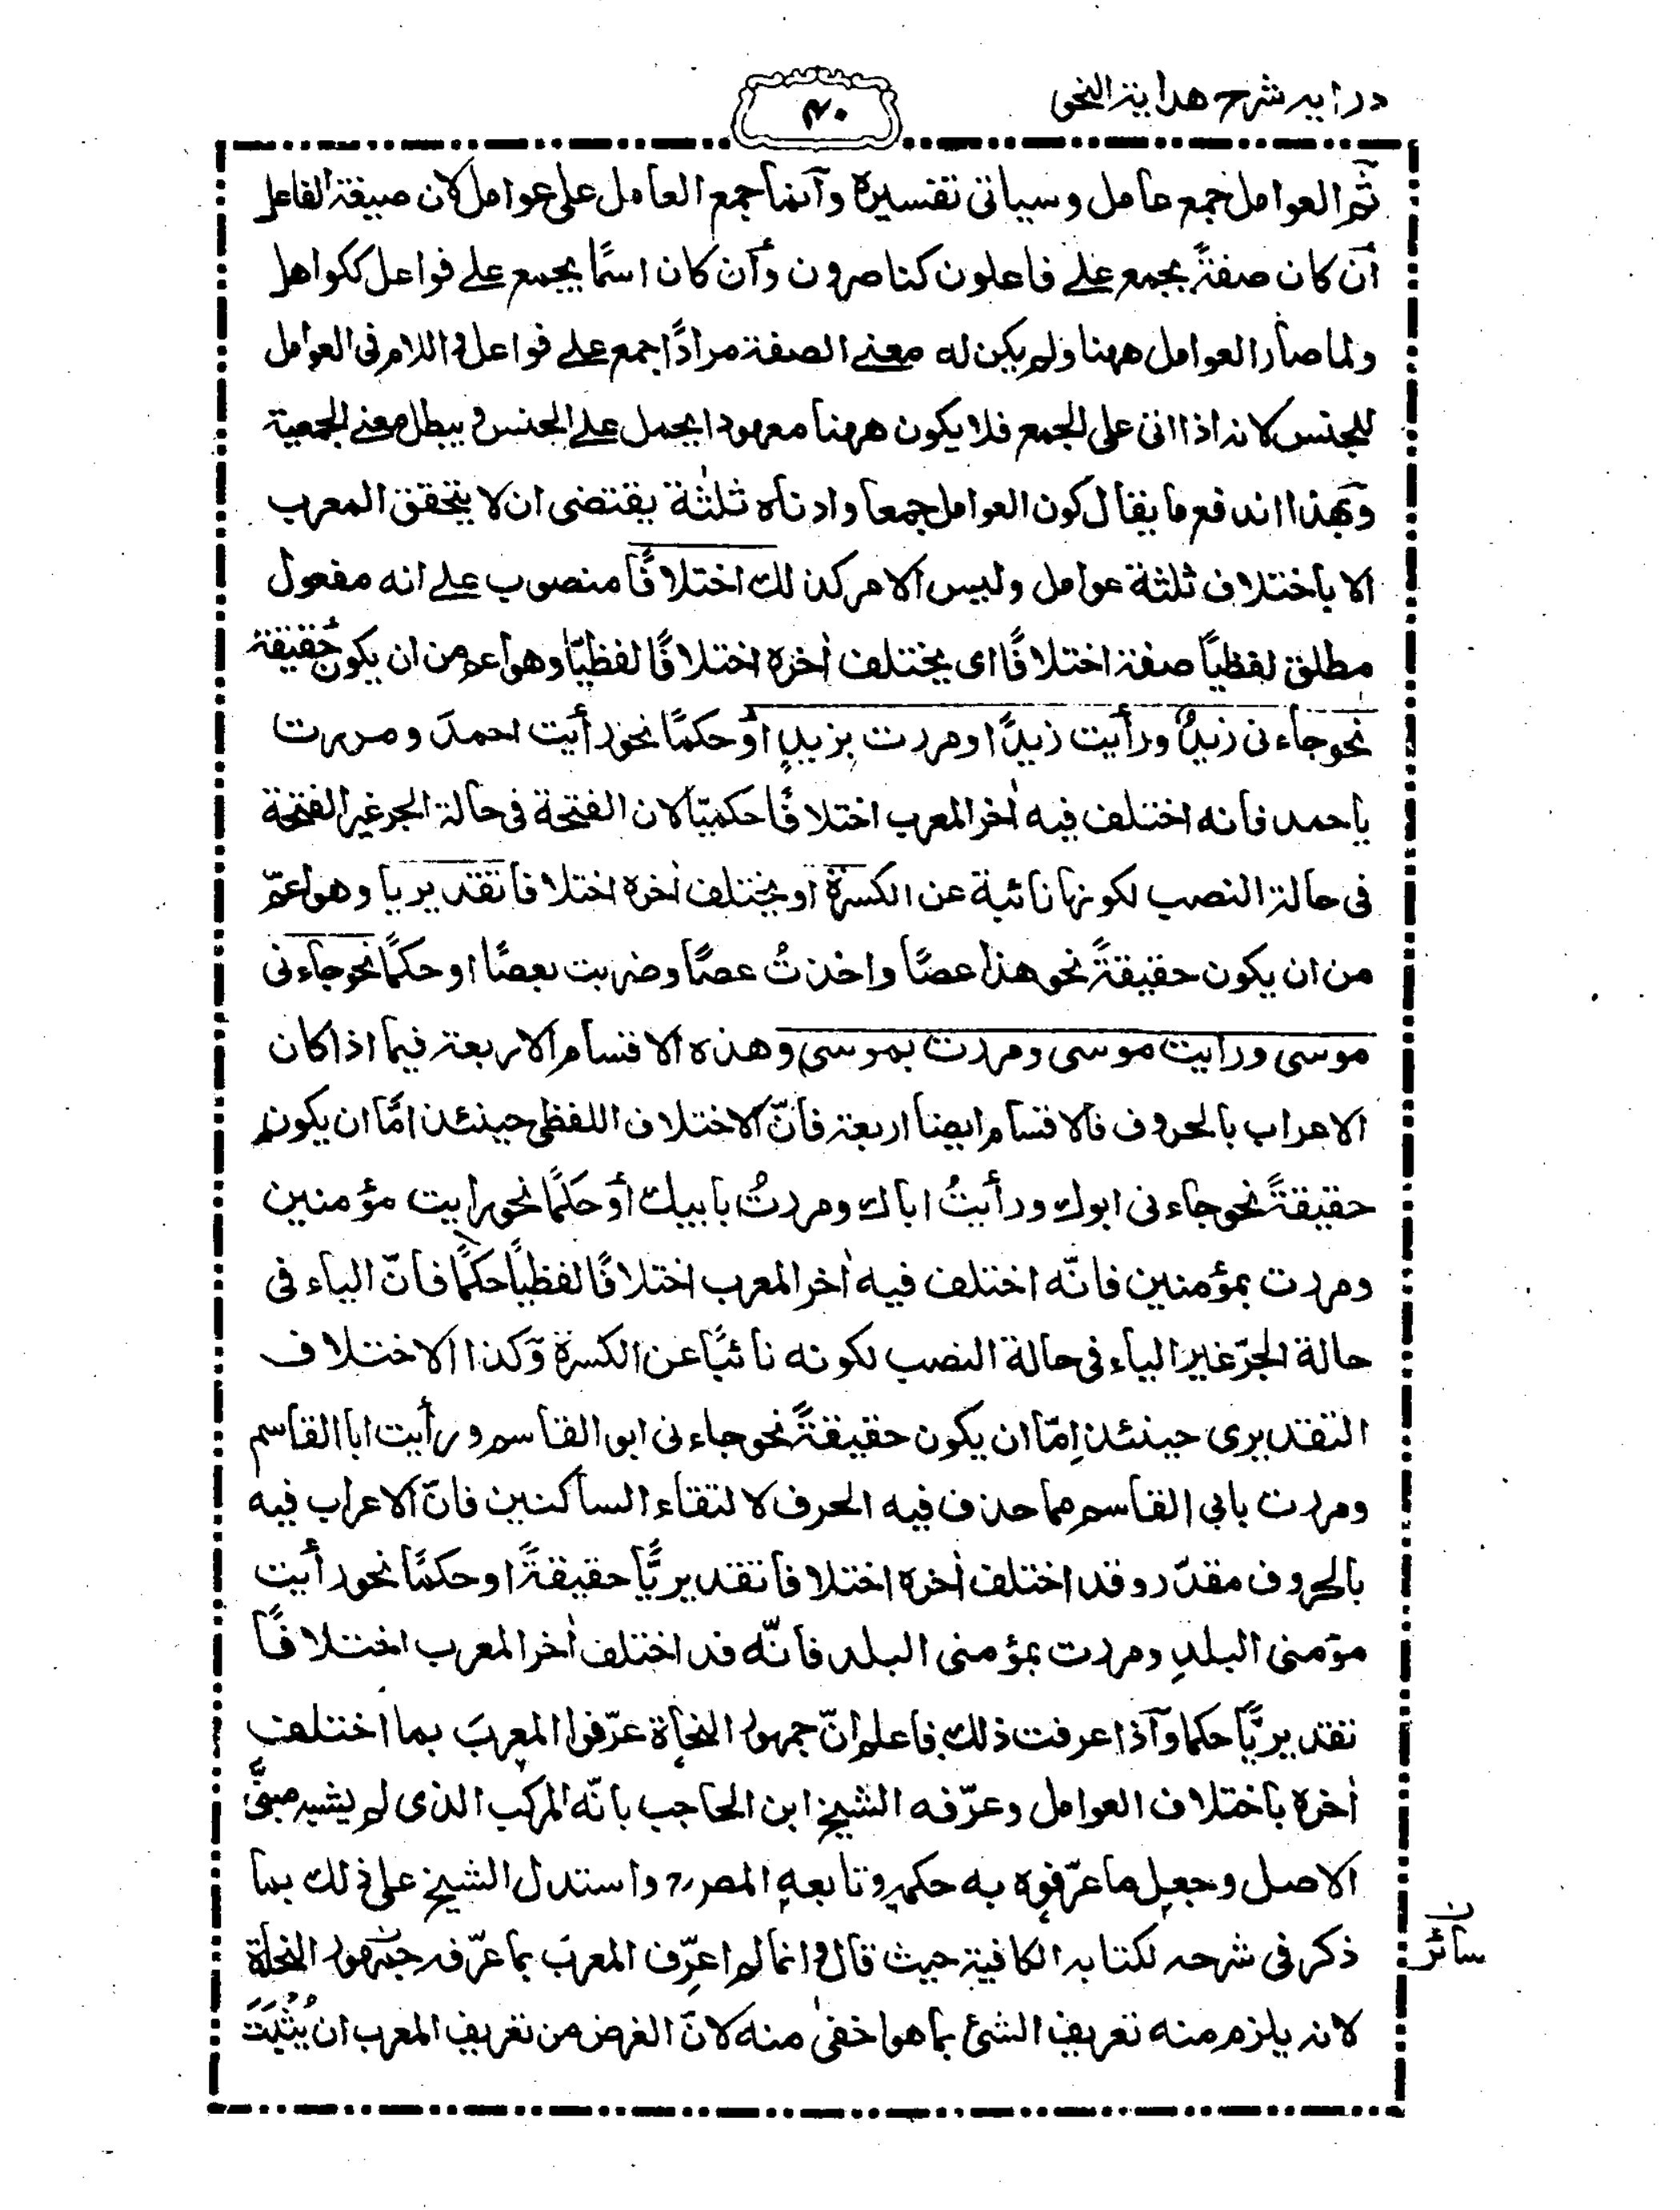 درايه شرح هداية النحو
٤٠
ثم العوامل جمع عامل وسياتى تفسيره وآنما جمع العامل على عوامل لان صيغة الفاعل
أن كان صفةً يجمع على فاعلون كناصرون وأن كان اسمًا يجمع على فواعل ككواهل
ولما صار العوامل ههنا ولم يكن له معنى الصفة مرادًا جمع على فواعل و اللام فى العوامل
للجنس لانه اذا اتى على الجمع فلا يكون ههنا معهودا يحمل على الجنس و يبطل معنى الجمعية
وبهذا اندفع ما يقال كون العوامل جمعا وادناه ثلثة يقتضى ان لا يتحقق المعرب
الا باختلاف ثلثة عوامل وليس الامر كذلك اختلافًا منصوب على انه مفعول
مطلق لفظيًا صفة اختلافًا اى يختلف أخره اختلافًا لفظيًّا وهو اعم من ان يكون حقيقة
نحو جاءنى زيدٌ ورأيت زيدًا ومررت بزيدٍ أو حكمًا نحو رأيت احمدَ ومررت
باحمد فانه اختلف فيه أخر المعرب اختلافًا حكميًّا لان الفتحة فى حالة الجر غير الفتحة
فى حالة النصب لكونها نائبة عن الكسرة او يختلف أخره اختلافا تقديريا وهو اعمّ
من ان يكون حقيقةً نحو هذا عصًا واخذتُ عصًا وضربت بعصًا او حكمًا نحو جاءنى
موسى ورايت موسى ومررت بموسى وهذه الاقسام الاربعة فيما اذا كان
الاعراب بالحروف فالاقسام ايضا اربعة فانّ الاختلاف اللفظى حينئذ امّا ان يكون
حقيقةً نحو جاءنى ابوك ورأيتُ اباك ومررتُ بابيك أو حكمًا نحو رايت مؤمنين
ومررت بمؤمنين فانّه اختلف فيه أخر المعرب اختلافًا لفظيًا حكمًا فانّ الياء فى
حالة الجرّ غير الياء فى حالة النصب لكونه نائبًا عن الكسرة وكذا الاختلاف
التقديرى حينئذ اِمّا ان يكون حقيقةً نحو جاءنى ابو القاسم و رأيت ابا القاسم
ومررت بابى القاسم مما حذف فيه الحرف لالتقاء الساكنين فانّ الاعراب فيه
بالحروف مقدّر وقد اختلف أخره اختلافا تقديريًّا حقيقةً او حكمًا نحو رأيت
مؤمنى البلدِ ومررت بمؤمنى البلد فانّه قد اختلف أخر المعرب اختلافًا
تقديريًّا حكما وآذا عرفت ذلك فاعلم انّ جمهور النحاة عرّفوا المعربَ بما اختلف
أخره باختلاف العوامل وعرّفه الشيخ ابن الحاجب بانّه المركب الذى لم يشبه مبنىَّ
الاصل وجعل ما عرّفوه به حكمه وتابعه المصرح واستدل الشيخ على ذلك بما
ذكر فى شرحه لكتابه الكافية حيث قال و انما لم اعرِّف المعربَ بما عرّفه جمهور النحاة
سائر ن
لانه يلزم منه تعريف الشئ بما هو اخفى منه لانّ الغرض من تعريف المعرب ان يُثْبَتَ